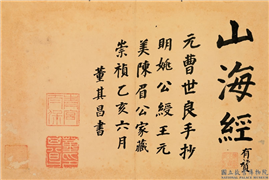 山海經
有質
元曹世良手抄
明姚公綬王元
美陳眉公家藏
崇禎乙亥六月
董其昌書